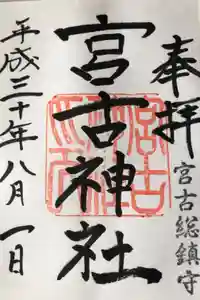 奉拝
宮古総鎮守
宮古神社
平成三十年八月一日